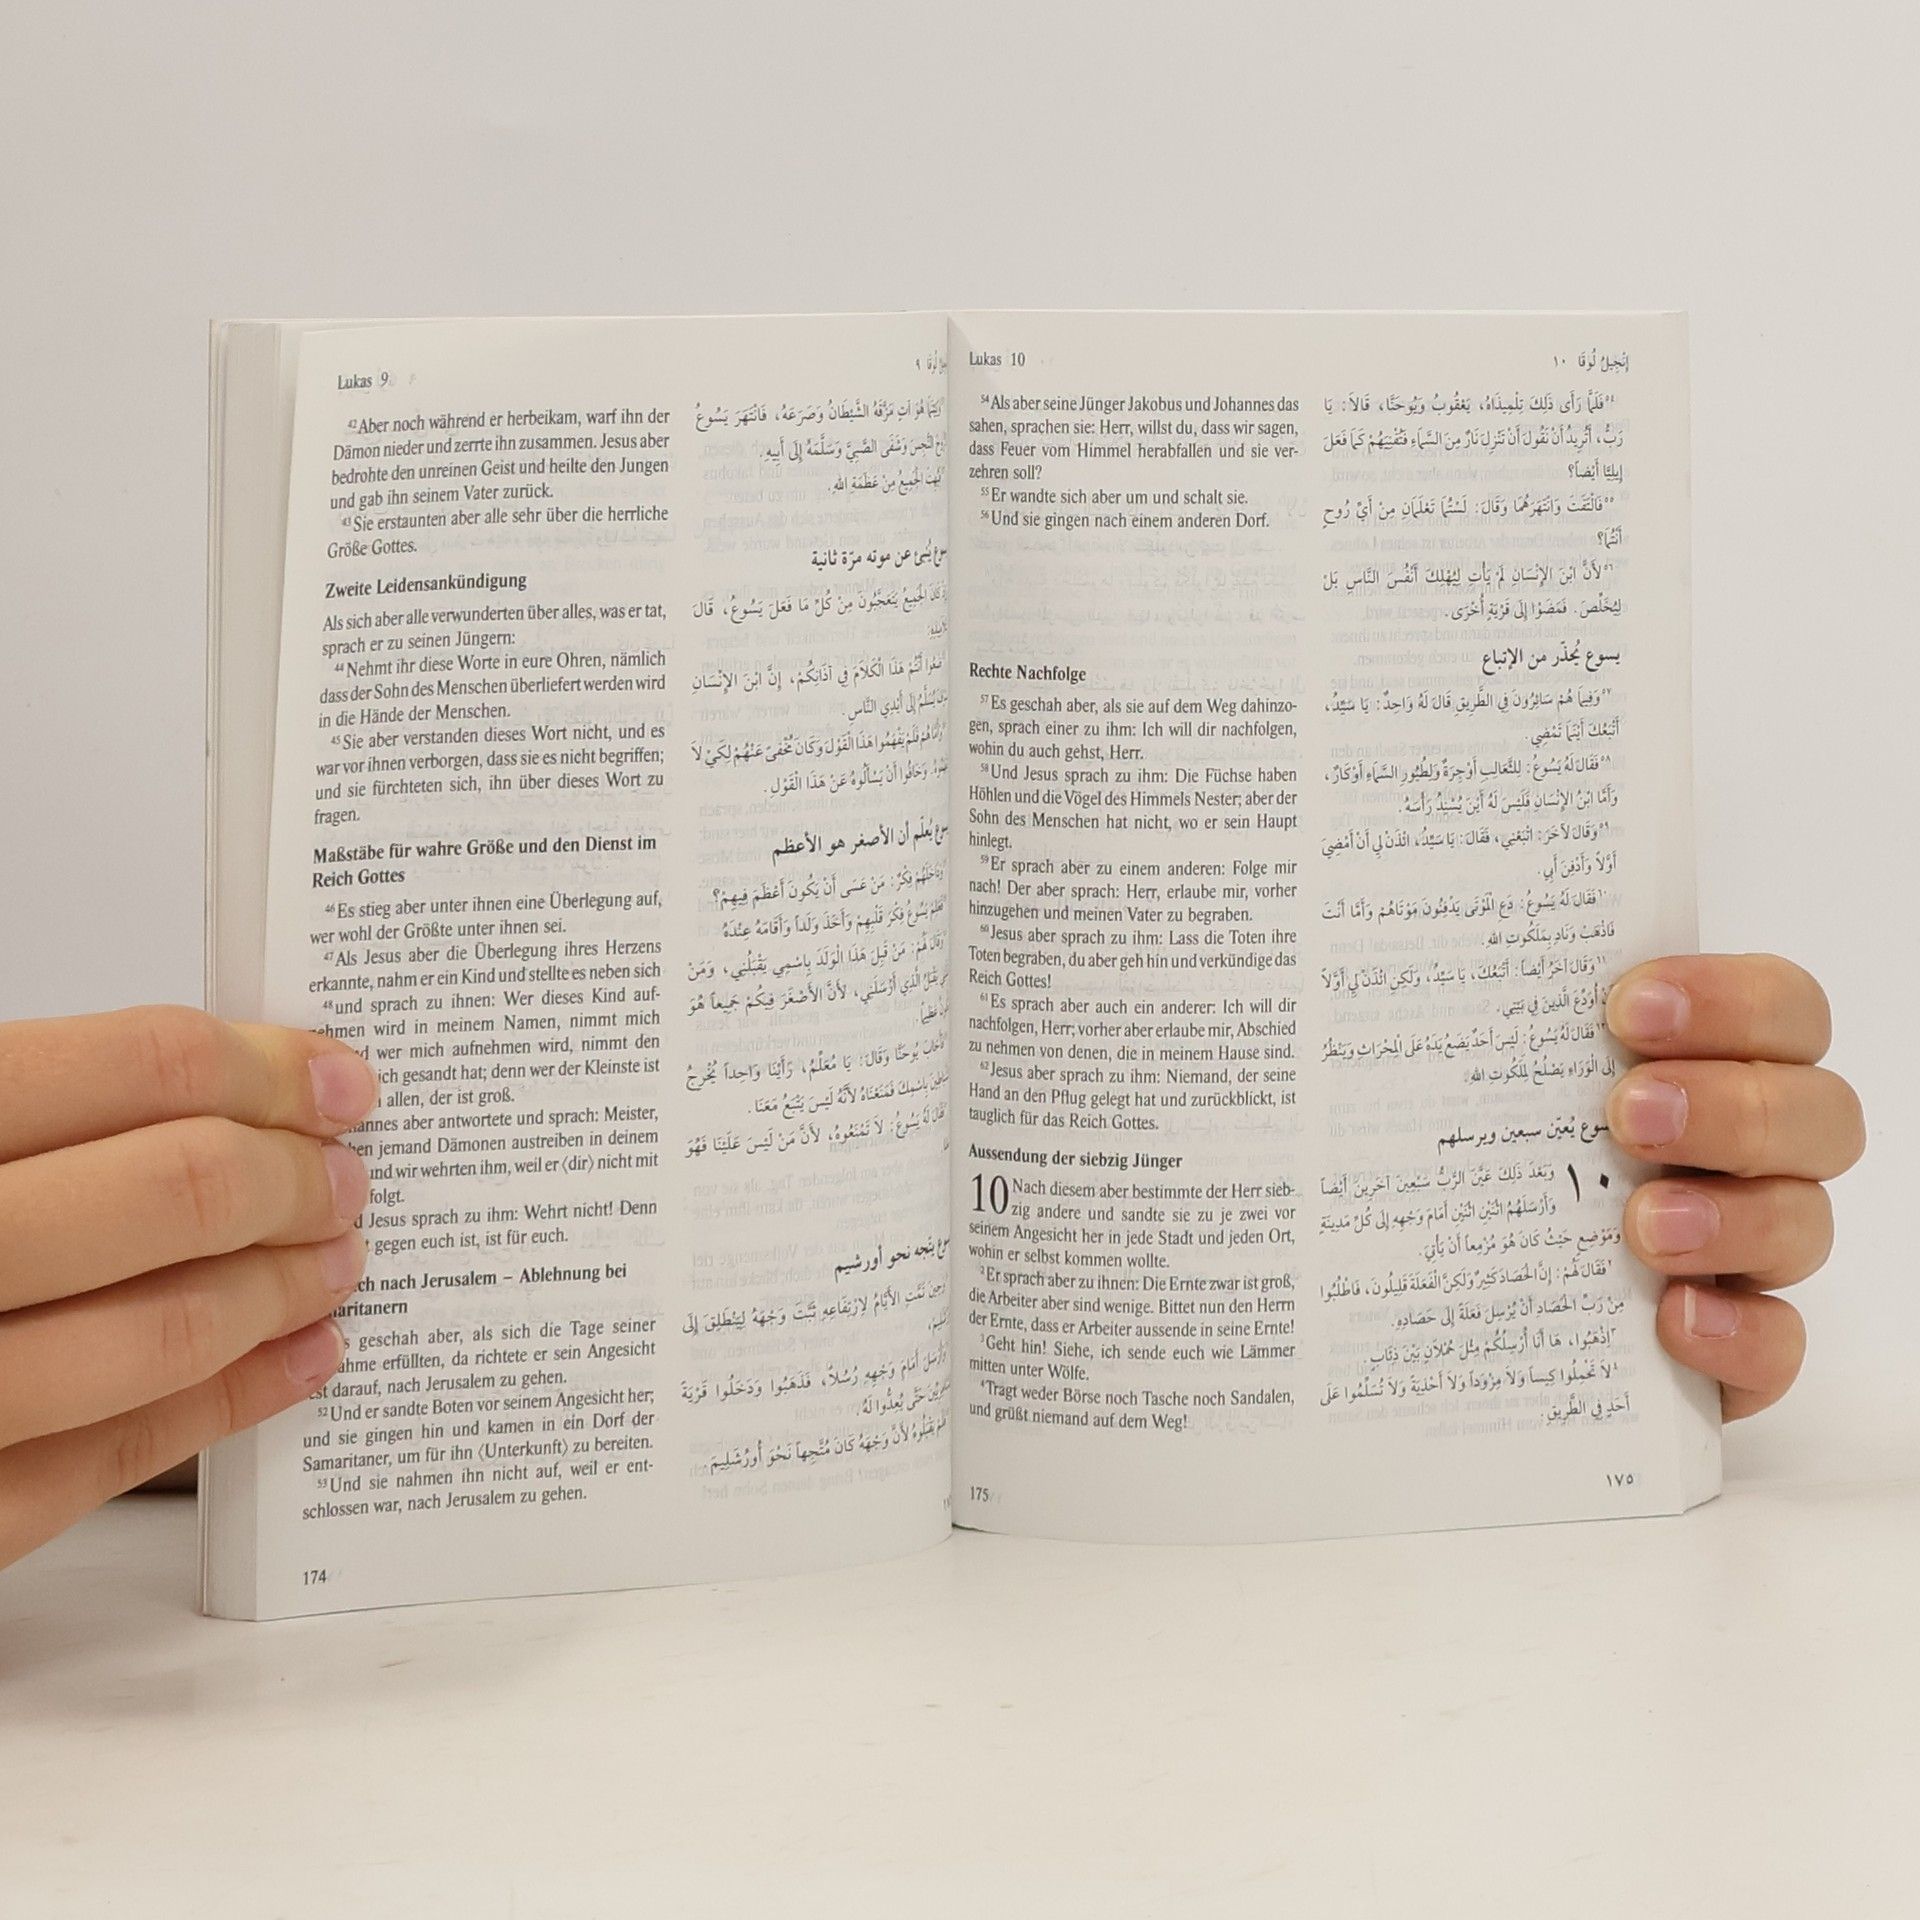 Lukas 9
⁴²Aber noch während er herbeikam, warf ihn der
Dämon nieder und zerrte ihn zusammen. Jesus aber
bedrohte den unreinen Geist und heilte den Jungen
und gab ihn seinem Vater zurück.
⁴³Sie erstaunten aber alle sehr über die herrliche
Größe Gottes.
Zweite Leidensankündigung
Als sich aber alle verwunderten über alles, was er tat,
sprach er zu seinen Jüngern:
⁴⁴Nehmt ihr diese Worte in eure Ohren, nämlich
dass der Sohn des Menschen überliefert werden wird
in die Hände der Menschen.
⁴⁵Sie aber verstanden dieses Wort nicht, und es
war vor ihnen verborgen, dass sie es nicht begriffen;
und sie fürchteten sich, ihn über dieses Wort zu
fragen.
Maßstäbe für wahre Größe und den Dienst im
Reich Gottes
⁴⁶Es stieg aber unter ihnen eine Überlegung auf,
wer wohl der Größte unter ihnen sei.
⁴⁷Als Jesus aber die Überlegung ihres Herzens
erkannte, nahm er ein Kind und stellte es neben sich
⁴⁸und sprach zu ihnen: Wer dieses Kind auf-
nehmen wird in meinem Namen, nimmt mich
wer mich aufnehmen wird, nimmt den
gesandt hat; denn wer der Kleinste ist
allen, der ist groß.
aber antwortete und sprach: Meister,
jemand Dämonen austreiben in deinem
und wir wehrten ihm, weil er ⟨dir⟩ nicht mit
folgt.
Jesus sprach zu ihm: Wehrt nicht! Denn
gegen euch ist, ist für euch.
nach Jerusalem – Ablehnung bei
geschah aber, als sich die Tage seiner
erfüllten, da richtete er sein Angesicht
darauf, nach Jerusalem zu gehen.
⁵²Und er sandte Boten vor seinem Angesicht her;
und sie gingen hin und kamen in ein Dorf der
Samaritaner, um für ihn ⟨Unterkunft⟩ zu bereiten.
⁵³Und sie nahmen ihn nicht auf, weil er ent-
schlossen war, nach Jerusalem zu gehen.
174
لُوقَا ٩
هُوَ آتٍ مَزَّقَهُ الشَّيْطَانُ وَصَرَعَهُ، فَانْتَهَرَ يَسُوعُ
النَّجِسَ وَشَفَى الصَّبِيَّ وَسَلَّمَهُ إِلَى أَبِيهِ.
الْجَمِيعُ مِنْ عَظَمَةِ اللهِ.
يُنبئ عن موته مرّة ثانية
الْجَمِيعُ يَتَعَجَّبُونَ مِنْ كُلِّ مَا فَعَلَ يَسُوعُ، قَالَ
أَنْتُمْ هَذَا الْكَلاَمَ فِي آذَانِكُمْ، إِنَّ ابْنَ الإِنْسَانِ
يُسَلَّمُ إِلَى أَيْدِي النَّاسِ.
فَلَمْ يَفْهَمُوا هَذَا الْقَوْلَ وَكَانَ مُخْفىً عَنْهُمْ لِكَيْ لاَ
وَخَافُوا أَنْ يَسْأَلُوهُ عَنْ هَذَا الْقَوْلِ.
يُعلّم أن الأصغر هو الأعظم
فِكْرٌ: مَنْ عَسَى أَنْ يَكُونَ أَعْظَمَ فِيهِمْ؟
يَسُوعُ فِكْرَ قَلْبِهِمْ وَأَخَذَ وَلَداً وَأَقَامَهُ عِنْدَهُ
لَهُمْ: مَنْ قَبِلَ هَذَا الْوَلَدَ بِاسْمِي يَقْبَلُنِي، وَمَنْ
يَقْبَلُ الَّذِي أَرْسَلَنِي، لأَنَّ الأَصْغَرَ فِيكُمْ جَمِيعاً هُوَ
يُوحَنَّا وَقَالَ: يَا مُعَلِّمُ، رَأَيْنَا وَاحِداً يُخْرِجُ
بِاسْمِكَ فَمَنَعْنَاهُ لأَنَّهُ لَيْسَ يَتْبَعُ مَعَنَا.
لَهُ يَسُوعُ: لاَ تَمْنَعُوهُ، لأَنَّ مَنْ لَيْسَ عَلَيْنَا فَهُوَ
يتّجه نحو أورشيم
تَمَّتِ الأَيَّامُ لاِرْتِفَاعِهِ ثَبَّتَ وَجْهَهُ لِيَنْطَلِقَ إِلَى
أَمَامَ وَجْهِهِ رُسُلاً، فَذَهَبُوا وَدَخَلُوا قَرْيَةً
حَتَّى يُعِدُّوا لَهُ.
يَقْبَلُوهُ لأَنَّ وَجْهَهُ كَانَ مُتَّجِهاً نَحْوَ أُورُشَلِيمَ.
Lukas 10
⁵⁴Als aber seine Jünger Jakobus und Johannes das
sahen, sprachen sie: Herr, willst du, dass wir sagen,
dass Feuer vom Himmel herabfallen und sie ver-
zehren soll?
⁵⁵Er wandte sich aber um und schalt sie.
⁵⁶Und sie gingen nach einem anderen Dorf.
Rechte Nachfolge
⁵⁷Es geschah aber, als sie auf dem Weg dahinzo-
gen, sprach einer zu ihm: Ich will dir nachfolgen,
wohin du auch gehst, Herr.
⁵⁸Und Jesus sprach zu ihm: Die Füchse haben
Höhlen und die Vögel des Himmels Nester; aber der
Sohn des Menschen hat nicht, wo er sein Haupt
hinlegt.
⁵⁹Er sprach aber zu einem anderen: Folge mir
nach! Der aber sprach: Herr, erlaube mir, vorher
hinzugehen und meinen Vater zu begraben.
⁶⁰Jesus aber sprach zu ihm: Lass die Toten ihre
Toten begraben, du aber geh hin und verkündige das
Reich Gottes!
⁶¹Es sprach aber auch ein anderer: Ich will dir
nachfolgen, Herr; vorher aber erlaube mir, Abschied
zu nehmen von denen, die in meinem Hause sind.
⁶²Jesus aber sprach zu ihm: Niemand, der seine
Hand an den Pflug gelegt hat und zurückblickt, ist
tauglich für das Reich Gottes.
Aussendung der siebzig Jünger
10 Nach diesem aber bestimmte der Herr sieb-
zig andere und sandte sie zu je zwei vor
seinem Angesicht her in jede Stadt und jeden Ort,
wohin er selbst kommen wollte.
²Er sprach aber zu ihnen: Die Ernte zwar ist groß,
die Arbeiter aber sind wenige. Bittet nun den Herrn
der Ernte, dass er Arbeiter aussende in seine Ernte!
³Geht hin! Siehe, ich sende euch wie Lämmer
mitten unter Wölfe.
⁴Tragt weder Börse noch Tasche noch Sandalen,
und grüßt niemand auf dem Weg!
175
إِنْجِيلُ لُوقَا ١٠
⁵⁴فَلَمَّا رَأَى ذَلِكَ تِلْمِيذَاهُ، يَعْقُوبُ وَيُوحَنَّا، قَالاَ: يَا
رَبُّ، أَتُرِيدُ أَنْ نَقُولَ أَنْ تَنْزِلَ نَارٌ مِنَ السَّمَاءِ فَتُفْنِيَهُمْ كَمَا فَعَلَ
إِيلِيَّا أَيْضاً؟
⁵⁵فَالْتَفَتَ وَانْتَهَرَهُمَا وَقَالَ: لَسْتُمَا تَعْلَمَانِ مِنْ أَيِّ رُوحٍ
أَنْتُمَا؟
⁵⁶لأَنَّ ابْنَ الإِنْسَانِ لَمْ يَأْتِ لِيُهْلِكَ أَنْفُسَ النَّاسِ بَلْ
لِيُخَلِّصَ. فَمَضَوْا إِلَى قَرْيَةٍ أُخْرَى.
يسوع يُحذّر من الإتباع
⁵⁷وَفِيمَا هُمْ سَائِرُونَ فِي الطَّرِيقِ قَالَ لَهُ وَاحِدٌ: يَا سَيِّدُ،
أَتْبَعُكَ أَيْنَمَا تَمْضِي.
⁵⁸فَقَالَ لَهُ يَسُوعُ: لِلثَّعَالِبِ أَوْجِرَةٌ وَلِطُيُورِ السَّمَاءِ أَوْكَارٌ،
وَأَمَّا ابْنُ الإِنْسَانِ فَلَيْسَ لَهُ أَيْنَ يُسْنِدُ رَأْسَهُ.
⁵⁹وَقَالَ لآخَرَ: اتْبَعْنِي، فَقَالَ: يَا سَيِّدُ، ائْذَنْ لِي أَنْ أَمْضِيَ
أَوَّلاً وَأَدْفِنَ أَبِي.
⁶⁰فَقَالَ لَهُ يَسُوعُ: دَعِ الْمَوْتَى يَدْفِنُونَ مَوْتَاهُمْ وَأَمَّا أَنْتَ
فَاذْهَبْ وَنَادِ بِمَلَكُوتِ اللهِ.
⁶¹وَقَالَ آخَرُ أَيْضاً: أَتْبَعُكَ، يَا سَيِّدُ، وَلَكِنِ ائْذَنْ لِي أَوَّلاً
أَنْ أُوَدِّعَ الَّذِينَ فِي بَيْتِي.
فَقَالَ لَهُ يَسُوعُ: لَيْسَ أَحَدٌ يَضَعُ يَدَهُ عَلَى الْمِحْرَاثِ وَيَنْظُرُ
إِلَى الْوَرَاءِ يَصْلُحُ لِمَلَكُوتِ اللهِ.
يسوع يُعيّن سبعين ويرسلهم
١٠ وَبَعْدَ ذَلِكَ عَيَّنَ الرَّبُّ سَبْعِينَ آخَرِينَ أَيْضاً
وَأَرْسَلَهُمُ اثْنَيْنِ اثْنَيْنِ أَمَامَ وَجْهِهِ إِلَى كُلِّ مَدِينَةٍ
وَمَوْضِعٍ حَيْثُ كَانَ هُوَ مُزْمِعاً أَنْ يَأْتِيَ.
²فَقَالَ لَهُمْ: إِنَّ الْحَصَادَ كَثِيرٌ وَلَكِنَّ الْفَعَلَةَ قَلِيلُونَ، فَاطْلُبُوا
مِنْ رَبِّ الْحَصَادِ أَنْ يُرْسِلَ فَعَلَةً إِلَى حَصَادِهِ.
³اِذْهَبُوا، هَا أَنَا أُرْسِلُكُمْ مِثْلَ حُمْلاَنٍ بَيْنَ ذِئَابٍ.
⁴لاَ تَحْمِلُوا كِيساً وَلاَ مِزْوَداً وَلاَ أَحْذِيَةً وَلاَ تُسَلِّمُوا عَلَى
أَحَدٍ فِي الطَّرِيقِ.
١٧٥